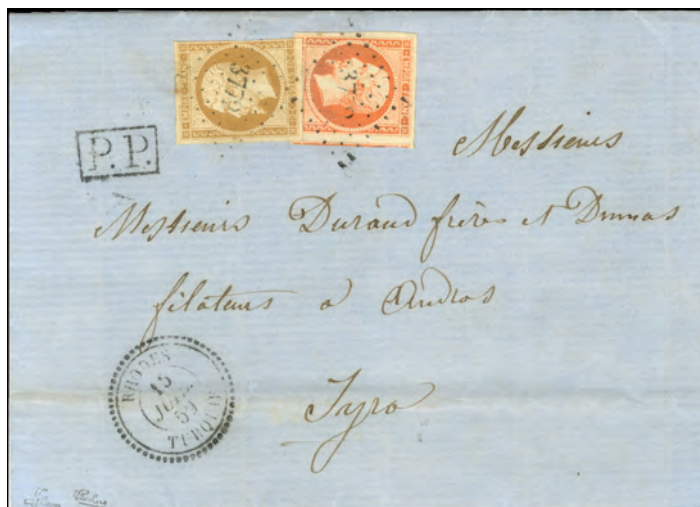 3779
P.P.
Messieurs
Messieurs Durand frères et Dumas
filateurs a Andros
Syra
RHODES
15
TURQUIE